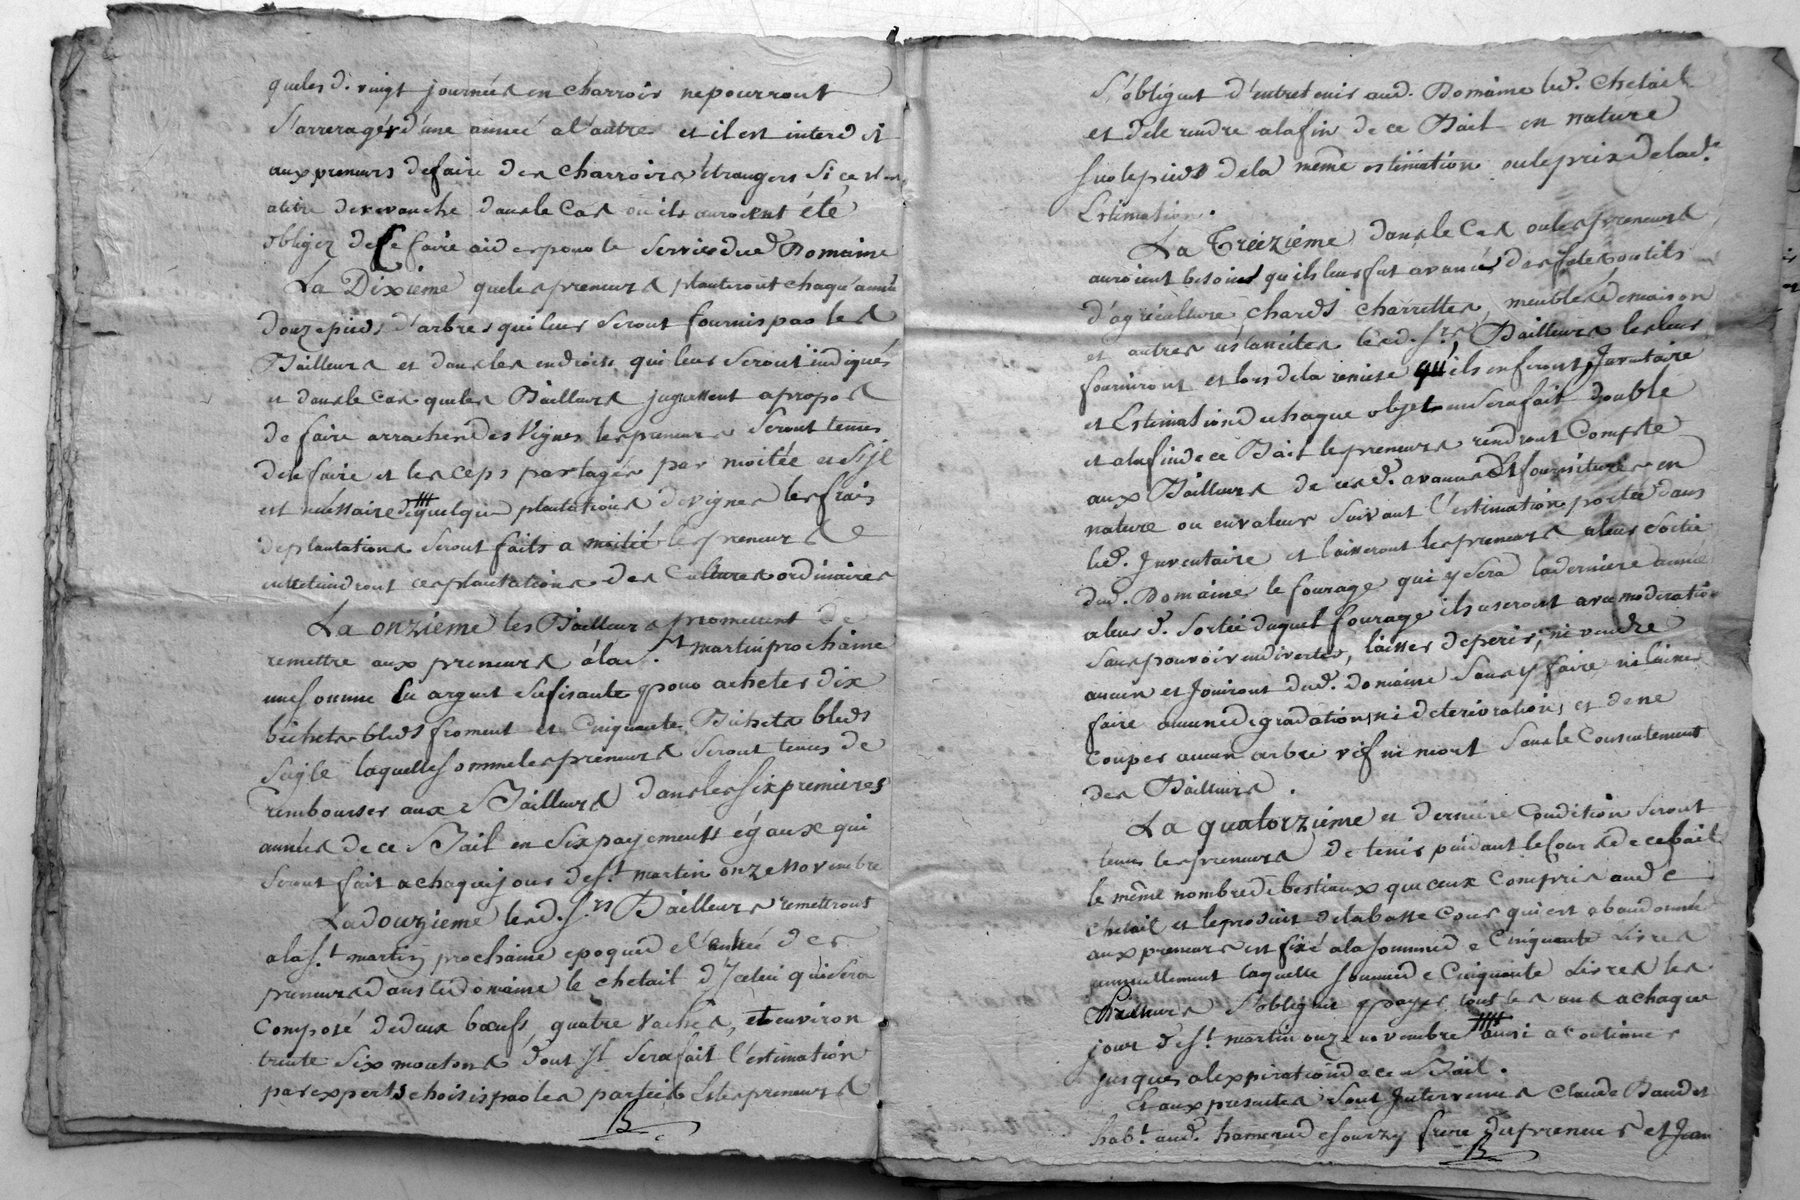 que les d. vingt journées en charrois ne pourront
s'arrerager d'une année a l'autre et il est interdit
aux preneurs de faire des charrois étrangers si ce n'est
a titre de revanche dans le cas ou ils auroient été
obliger de se faire aider pour le service dud. Domaine
La Dixieme que les preneurs planteront chaqu'année
douze pieds d'arbres qui leurs seront fournis par les
Bailleurs et dans les endroits qui leur seront indiqués
et dans le cas que les Bailleurs jugeassent a propos
de faire arracher des vignes les preneurs seront tenus
de le faire et les ceps partagés par moitée et s'il
est nécéssaire de quelque plantations de vignes les frais
de plantations seront faits a moitié les preneurs
entretiendront ces plantations des cultures ordinaires
La onzieme les Bailleurs promettent de
remettre aux preneurs á la s.t martin prochaine
une somme en argent sufisante pour acheter dix
bichets bleds froment et cinquante Bichets bleds
seigle laquelle somme les preneurs seront tenus de
rembourser aux Bailleurs dans les six premieres
années de ce Bail en six payements égaux qui
seront fait a chaque jour de s.t martin onze Novembre
La douzieme les d. s.rs Bailleurs remettront
a la s.t martin prochaine epoque de l'entrée des
preneurs dans led. domaine le chetail d'Icelui qui sera
composé de deux bœufs, quatre vaches, et environ
trente six moutons dont Il sera fait l'estimation
par experts choisis par les parties Et les preneurs
B
s'obligent d'entretenir aud. Domaine led. chetail
et de le rendre a la fin de ce Bail en nature
sur le pied de la meme estimation ou le prix de lad.e
Estimation.
La Treizieme dans le cas ou les preneurs
auroient besoins qu'ils leur fut avancé des outils
d'agriculture, chards charrettes, meubles de maison
et autres ustancilles les d. s.rs Bailleurs les leurs
fourniront et lors de la remise qu'ils en feront, Inventaire
et Estimation de chaque objet en sera fait double
et a la fin de ce Bail les preneurs rendront compte
aux Bailleurs de ces d. avances Et fournitures en
nature ou en valeur suivant l'estimation portée dans
led. Inventaire et laisseront les preneurs a leur sortie
dud. Domaine le fourage qui y sera la derniere année
a leur d. sortie duquel fourage ils useront avec moderation
sans pouvoir en divertir, laisser deperir, ni vendre
aucun et Jouiront dud. domaine sans y faire ni laisser
faire aucune dégradations, ni deteriorations et de ne
couper aucun arbre vif ni mort sans le consentement
des Bailleurs.
La quatorzieme et derniere condition seront
tenus les preneurs de tenir pendant le cours de ce bail
le même nombre de bestiaux que ceux compris aud.
chetail et le produit de la basse cour qui est abandonné
aux preneurs est fixé a la somme de cinquante Livres
annuellement laquelle somme de cinquante Livres les
Preneurs s'obligent payer tous les ans a chaque
jour de s.t martin onze novembre ainsi a continuer
jusques a l'expiration de ce Bail.
Et aux presentes sont Intervenus Claude Baudet
hab.t aud. hameau de sourzy frere des preneurs et Jean
B